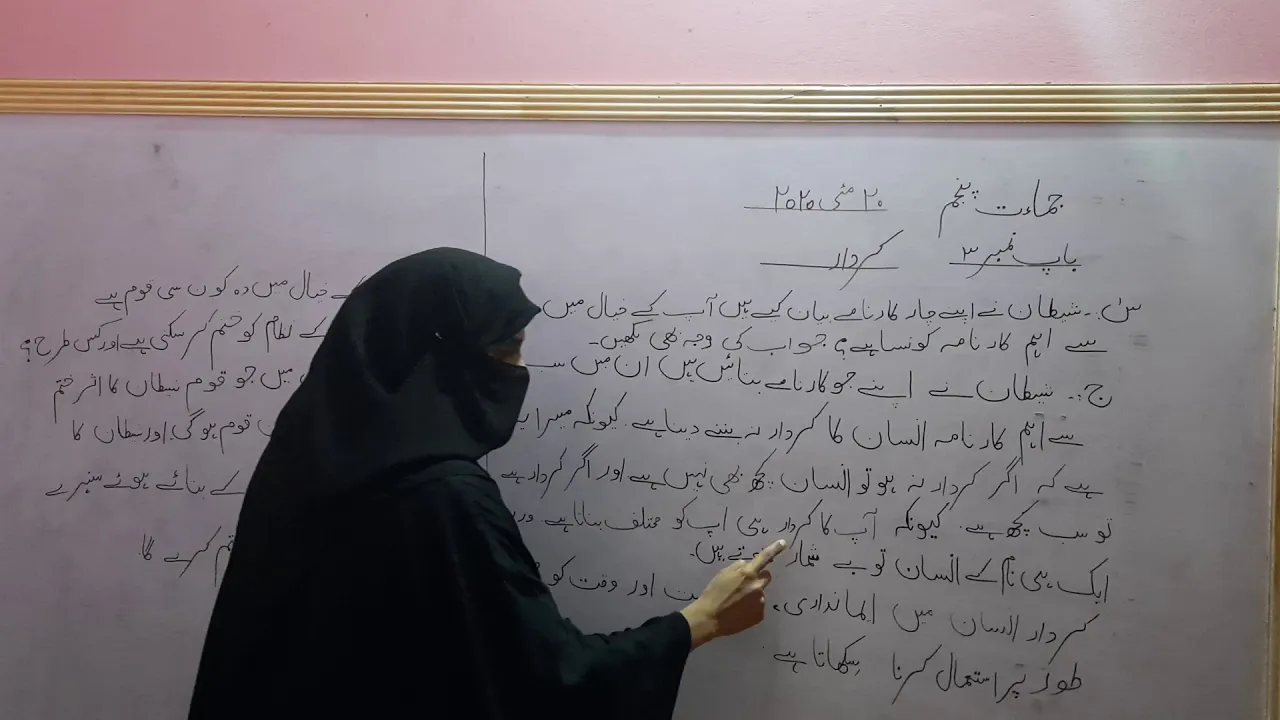 جماعت پنجم ۲۰ مئی ۲۰۲۰
باپ نمبر ۳ کردار
س:۔ شیطان نے اپنے چار کارنامے بیان کیے ہیں آپ کے خیال میں
سے اہم کارنامہ کونسا ہے؟ جواب کی وجہ بھی لکھیں۔
ج:۔ شیطان نے اپنے جو کارنامے بنائیں ہیں ان میں سے
سے اہم کارنامہ انسان کا کردار نہ بننے دینا ہے۔ کیونکہ میرا
ہے کہ اگر کردار نہ ہو تو انسان کچھ بھی نہیں ہے اور اگر کردار ہے
تو سب کچھ ہے۔ کیونکہ آپ کا کردار ہی آپ کو مختلف بناتا ہے
ایک ہی نام کے انسان تو بے شمار ہوتے ہیں۔
کردار انسان میں ایمانداری، اور وقت کو
طور پر استعمال کرنا سکھاتا ہے۔
کے خیال میں وہ کون سی قوم ہے
کے نظام کو ختم کر سکتی ہے اور کس طرح؟
میں جو قوم شیطان کا اثر ختم
قوم ہوگی اور شیطان کا
کے بنائے ہوئے سنہرے
ختم کرے گا